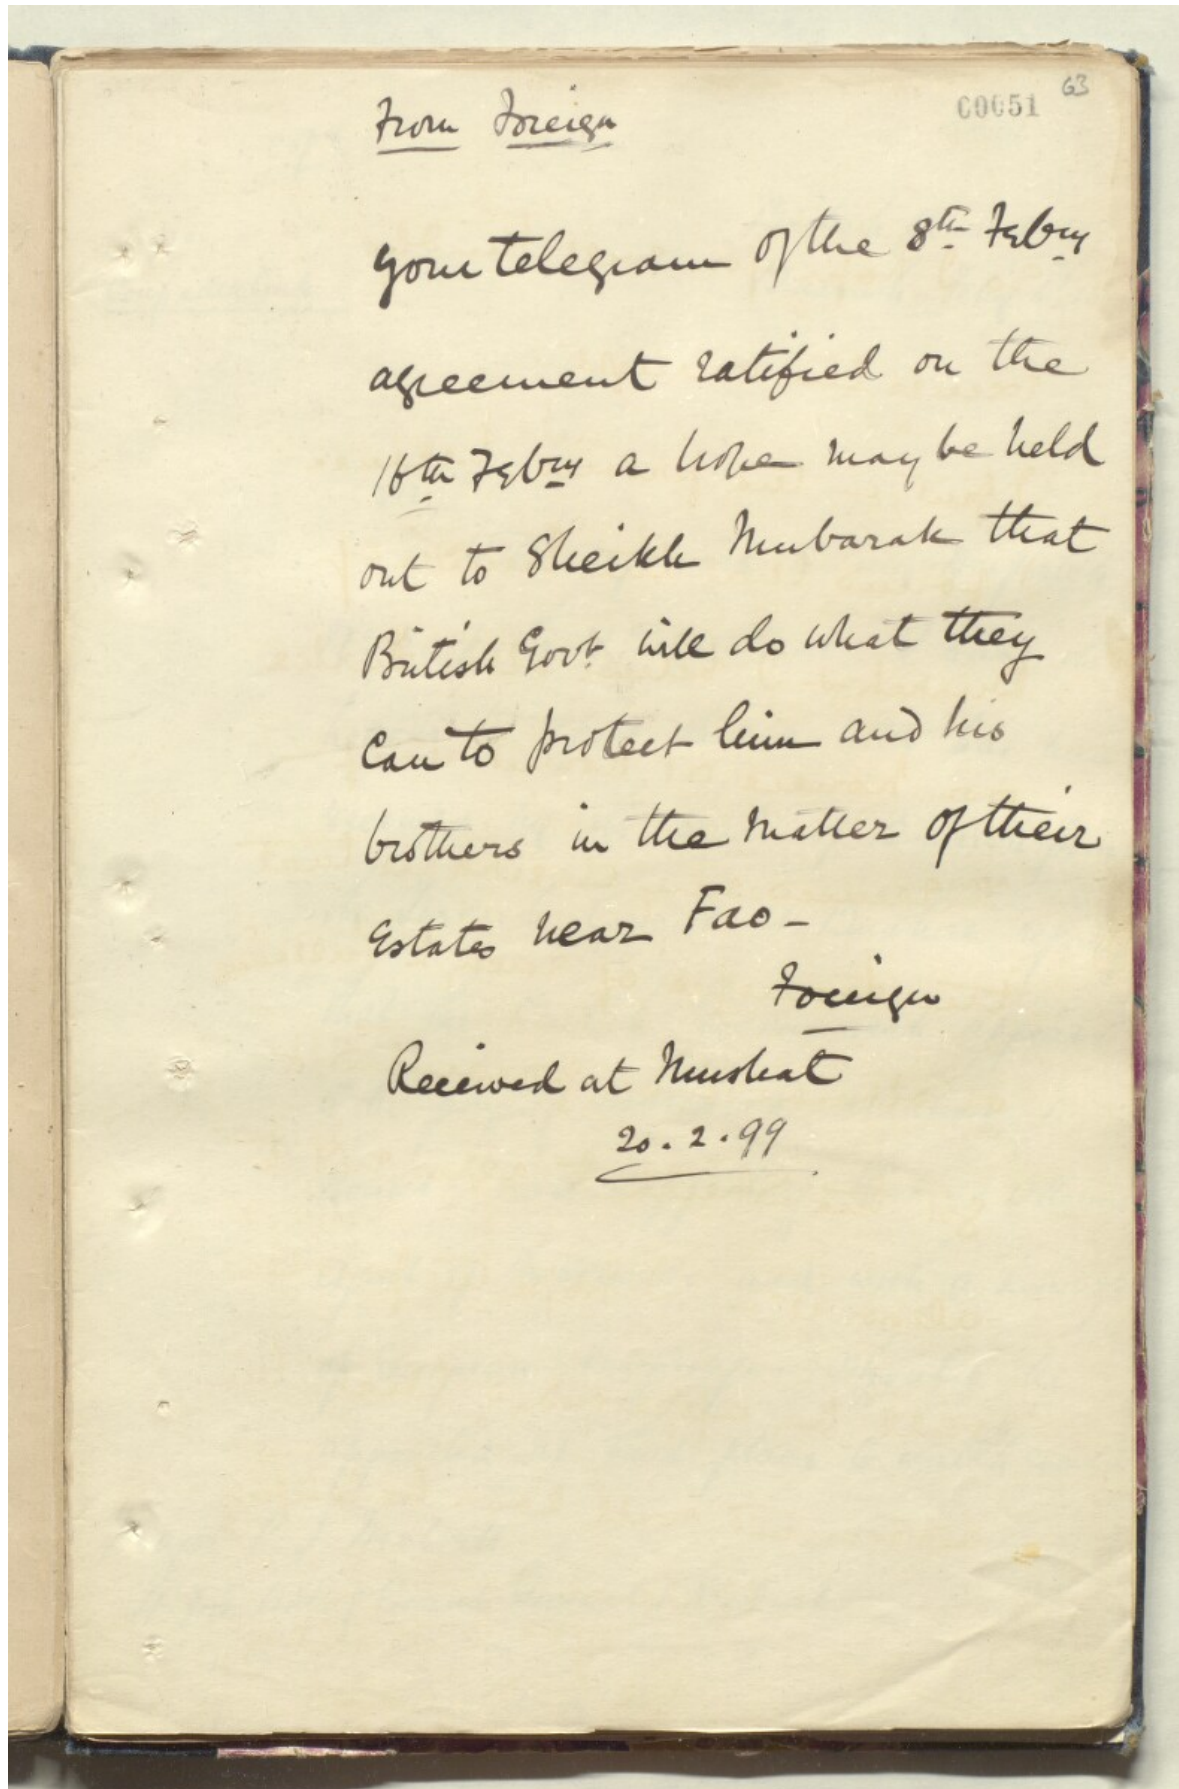 63
00051
From Foreign
Your telegram of the 8th Febry
agreement ratified on the
16th Febry a hope may be held
out to Sheikh Mubarak that
British Govt will do what they
can to protect him and his
brothers in the matter of their
Estates near Fao -
Foreign
Received at Muskat
20.2.99